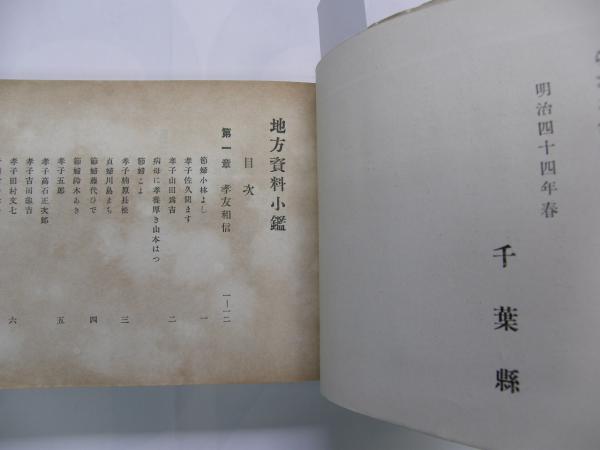 明治四十四年春
千葉縣
地方資料小鑑
目次
第一章 孝友和信 一—一二
節婦小林よし 一
孝子佐久間ます
孝子山田爲吉 二
病母に孝養厚き山本はつ
節婦こよ
孝子駒原長松 三
貞婦川島まち
節婦藤代ひで 四
節婦鈴木あき
孝子五郎 五
孝子高石正次郎
孝子吉田龜吉
孝子田村文七 六